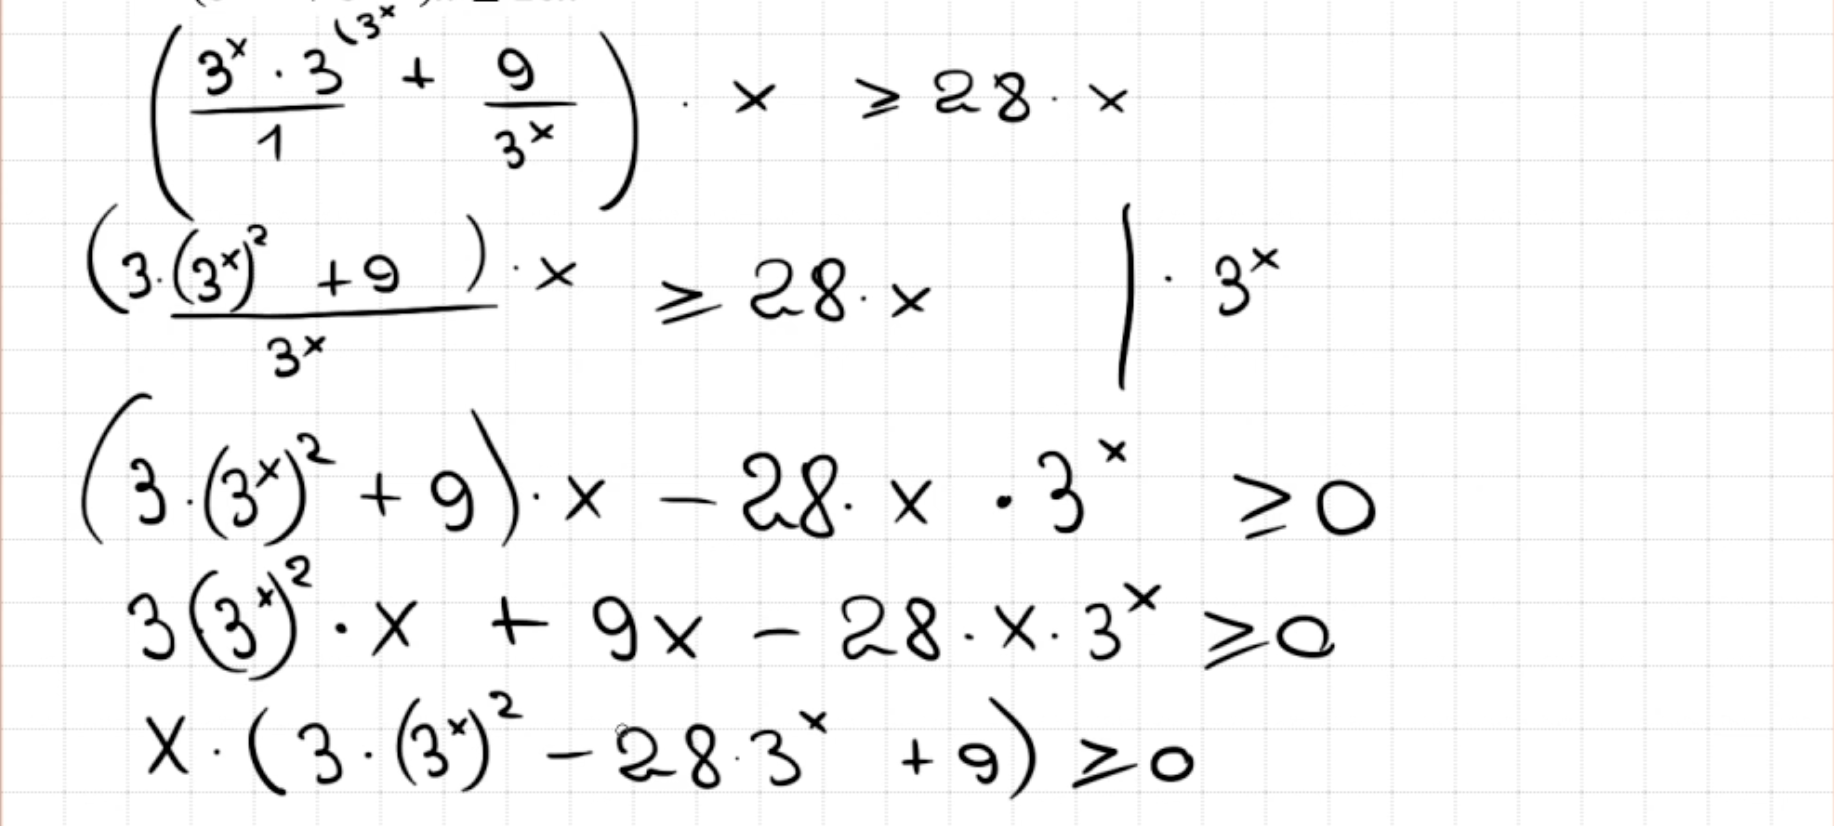 (3^x · 3^(3^x / 1 + 9 / 3^x) · x ≥ 28 · x
(3·(3^x)^2 + 9) · x / 3^x ≥ 28 · x | · 3^x
(3·(3^x)^2 + 9) · x − 28 · x · 3^x ≥ 0
3(3^x)^2 · x + 9x − 28 · x · 3^x ≥ 0
x · (3 · (3^x)^2 − 28 · 3^x + 9) ≥ 0